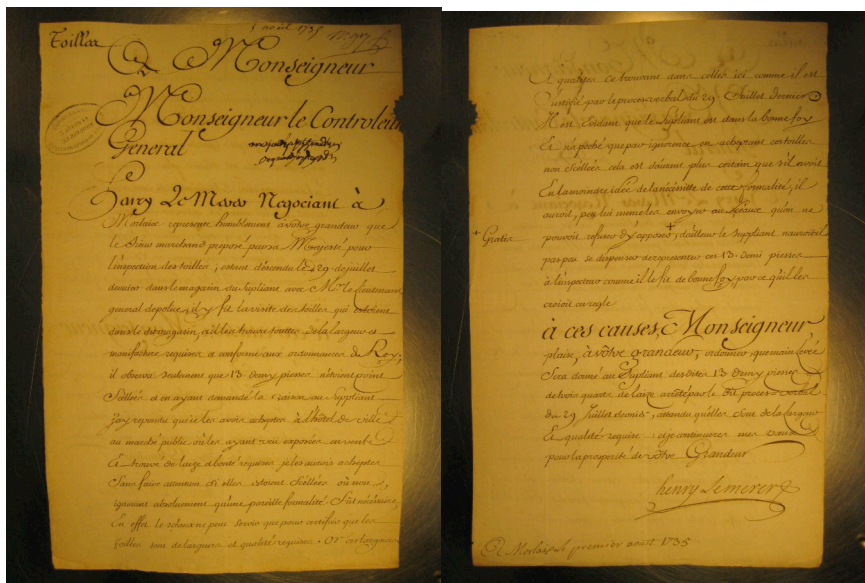 Toilles
1 aoust 1735
A Monseigneur
Monseigneur le Controleur
General
Harry Le Merer Negociant à
Morlaix represente humblement à vôtre grandeur que
le Sieur marchand preposé par sa Majesté pour
l'inspection des toilles, estant descendu le 29 de juillet
dernier dans le magasin du Supliant avec Mr. le Lieutenant
general de police, il y fit la visite des toilles qui estoient
dans le magasin, où il les trouva toutes de la largeur et
manifacture requises et conforme aux ordonnances du Roy,
il observa seulement que 13 demy pieces n'etoient point
Scellées et en ayant demandé la raison au Suppliant
j'ay repondu que je les avois acheptée à l'hôtel de ville
au marché public où les ayant vu exposées en vente
Et trouvé de laize et bonté requises je les aurois acheptées
Sans faire attention si elles estoient Scellées où non,
ignorant absolument qu'une pareille formalité fut nécéssaire,
En effet le sceau ne peut servir que pour certifier que les
toilles sont de largeurs et qualité requises. Or ces largeurs
Et qualités ce trouvant dans celles icy comme il est
Justifié par le procès verbal du 29 Juillet dernier
Il est Evidant que le Supliant est dans la bonne foy
Et n'a peché que par ignorence en acheptant ces toilles
non Scellées cela est d'autant plus certain que s'il avoit
Eu la moindre idée de la nécéssitté de cette formalité, il
auroit peu lui meme les envoyer au Sceau qu'on ne
pouvoit refuser d'y apposer +, d'ailleurs le Suppliant n'auroit
+ Gratis
pas peu se dispenser de representer ces 13 demi pieces
à l'inspecteur comme il le fit de bonne foy, parce qu'il les
croioit en regle
à ces causes, Monseigneur
plaise, à vôtre grandeur, ordonner, que main levée
Sera donné au Supliant des dites 13 demy pieces
de trois quarts de laize arreté par le dit procès verbal
du 29 Juillet dernier, attendu qu'elles sont de la largeur
Et qualité requise; et je continuerez mes vœux
pour la prosperité de vôtre Grandeur
henry Lemerer
A Morlaix Le premier août 1735